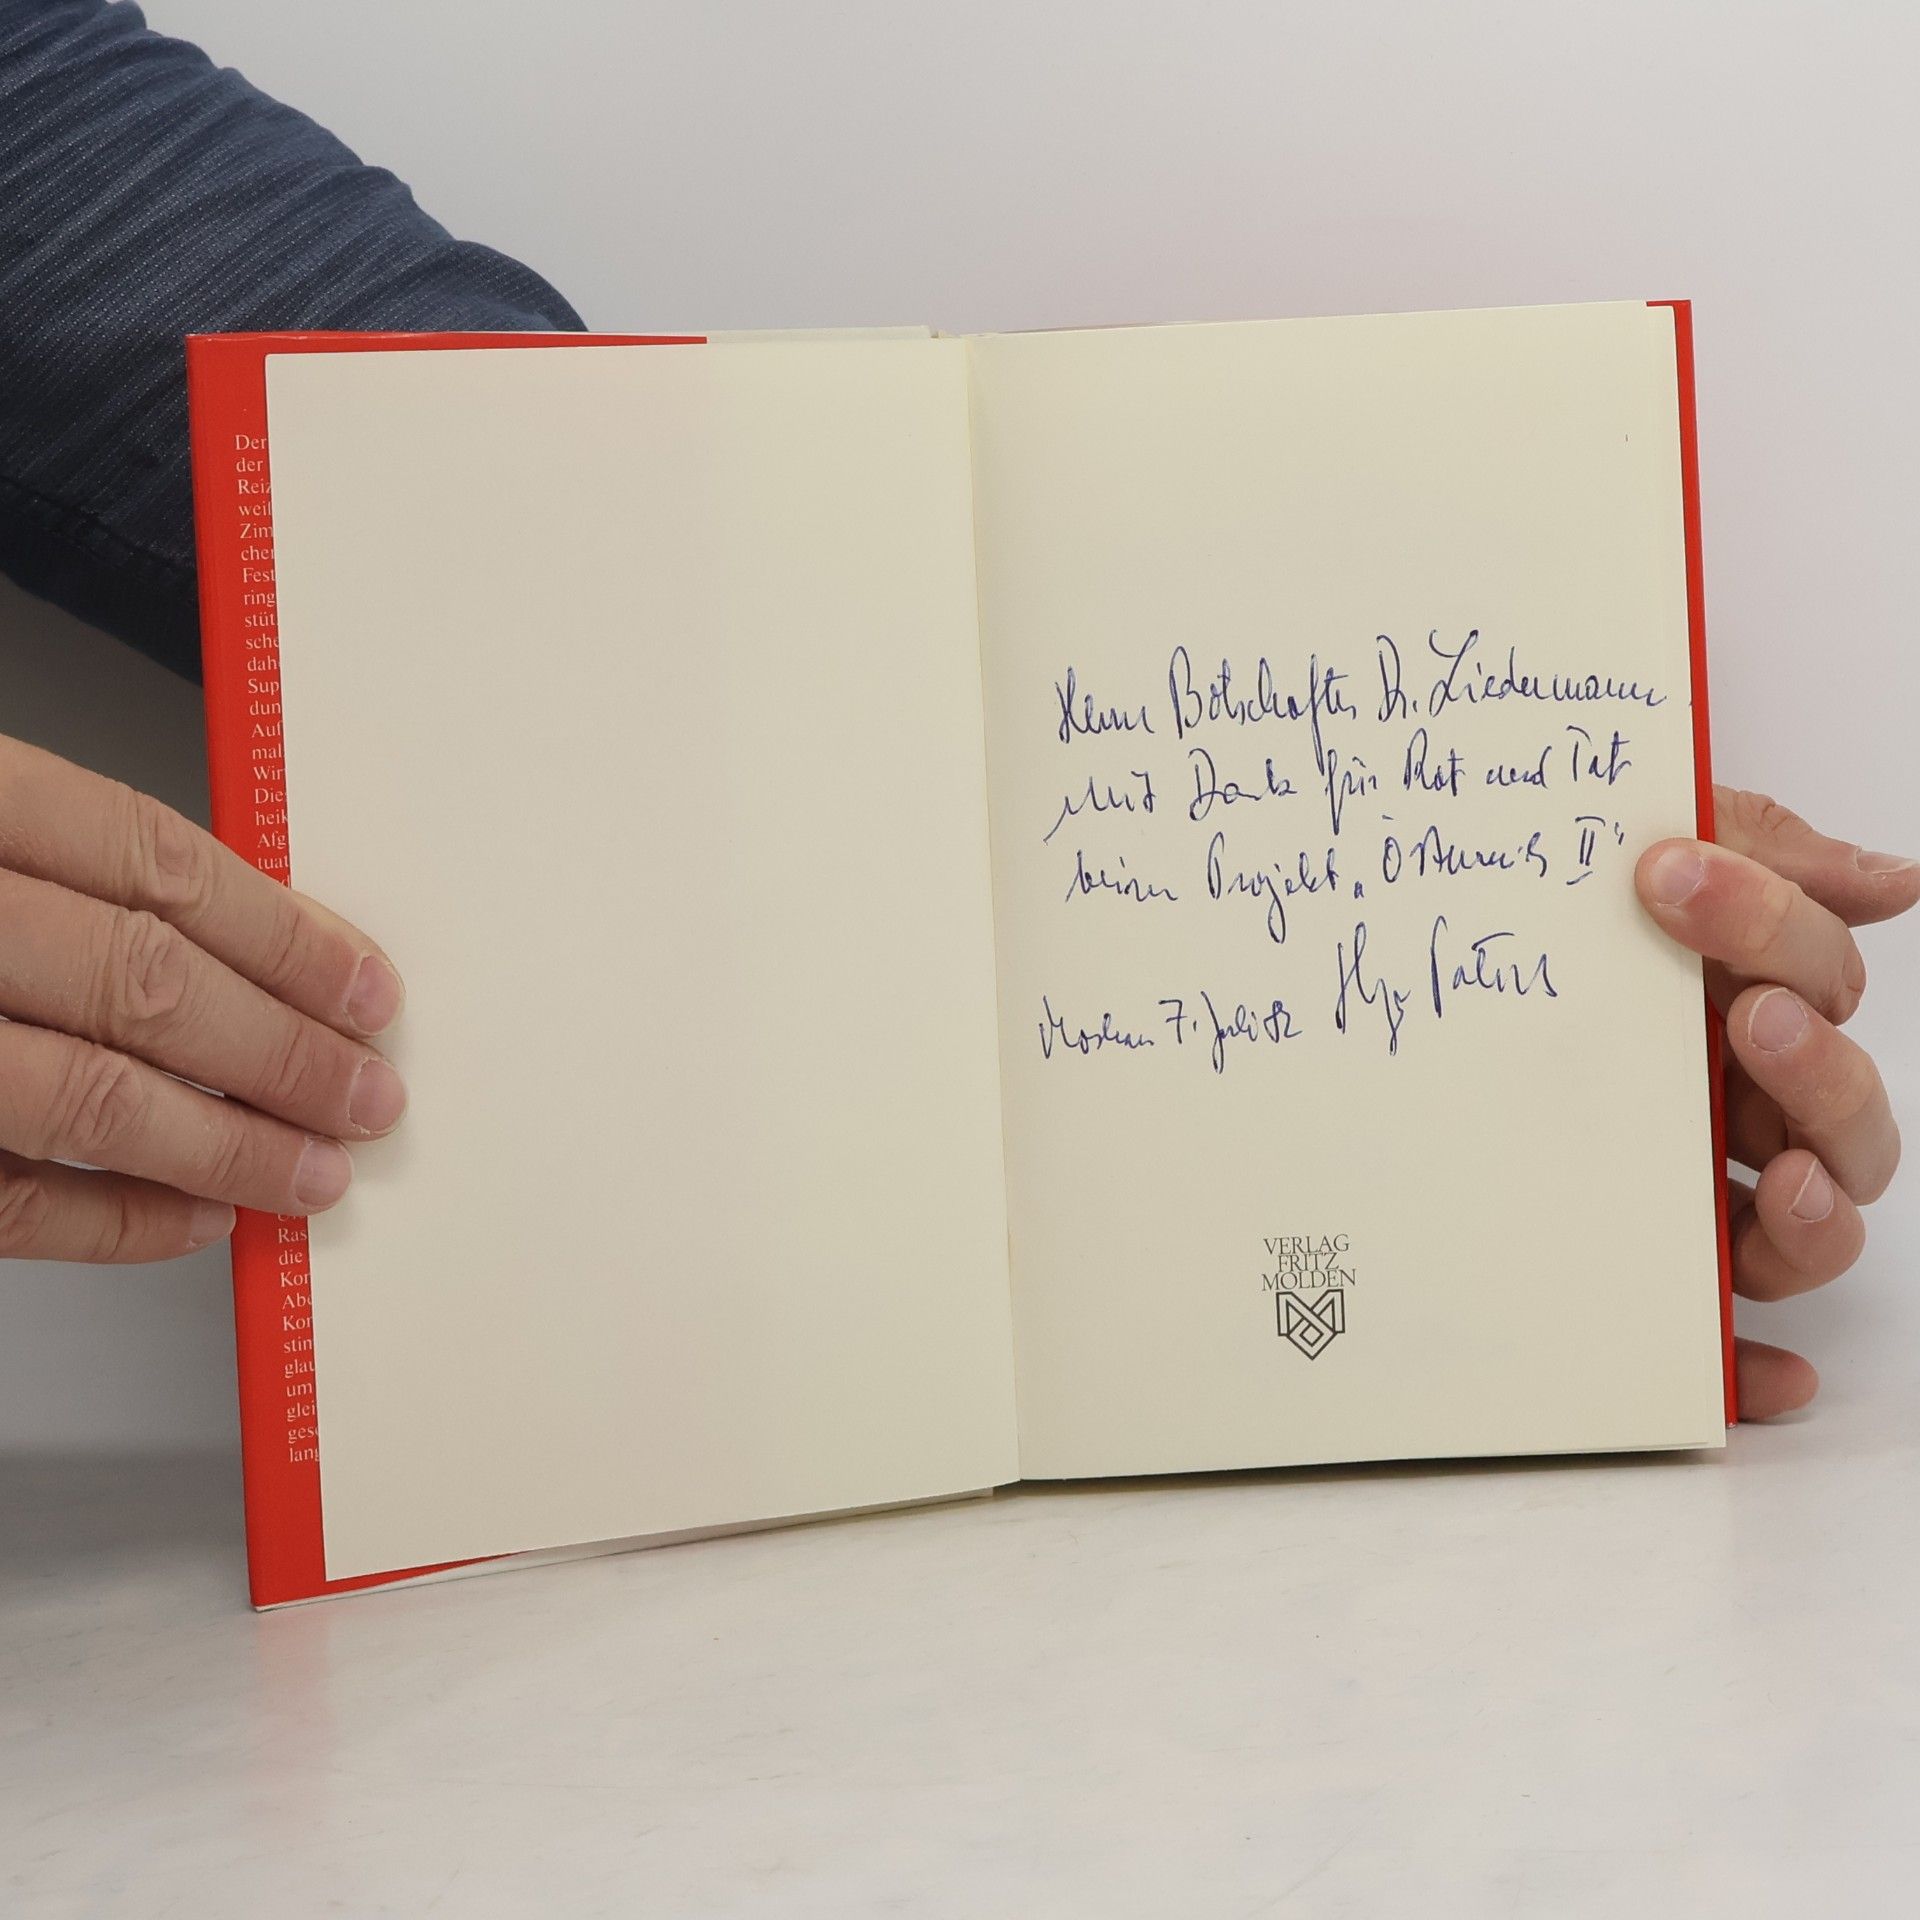 Der
der
Reiz
weiß
Zim
cher
Fest
ring
stüt
sche
dah
Sup
dun
Auf
mal
Wir
Die
heik
Afg
tuat
Ras
die
Kor
Abe
Kor
stim
glau
um
glei
ges
lang
Herrn Botschafter Dr. Liedermann
mit Dank für Rat und Tat
beim Projekt „Österreich II“
Moskau 7. Juli 82
VERLAG
FRITZ
MOLDEN